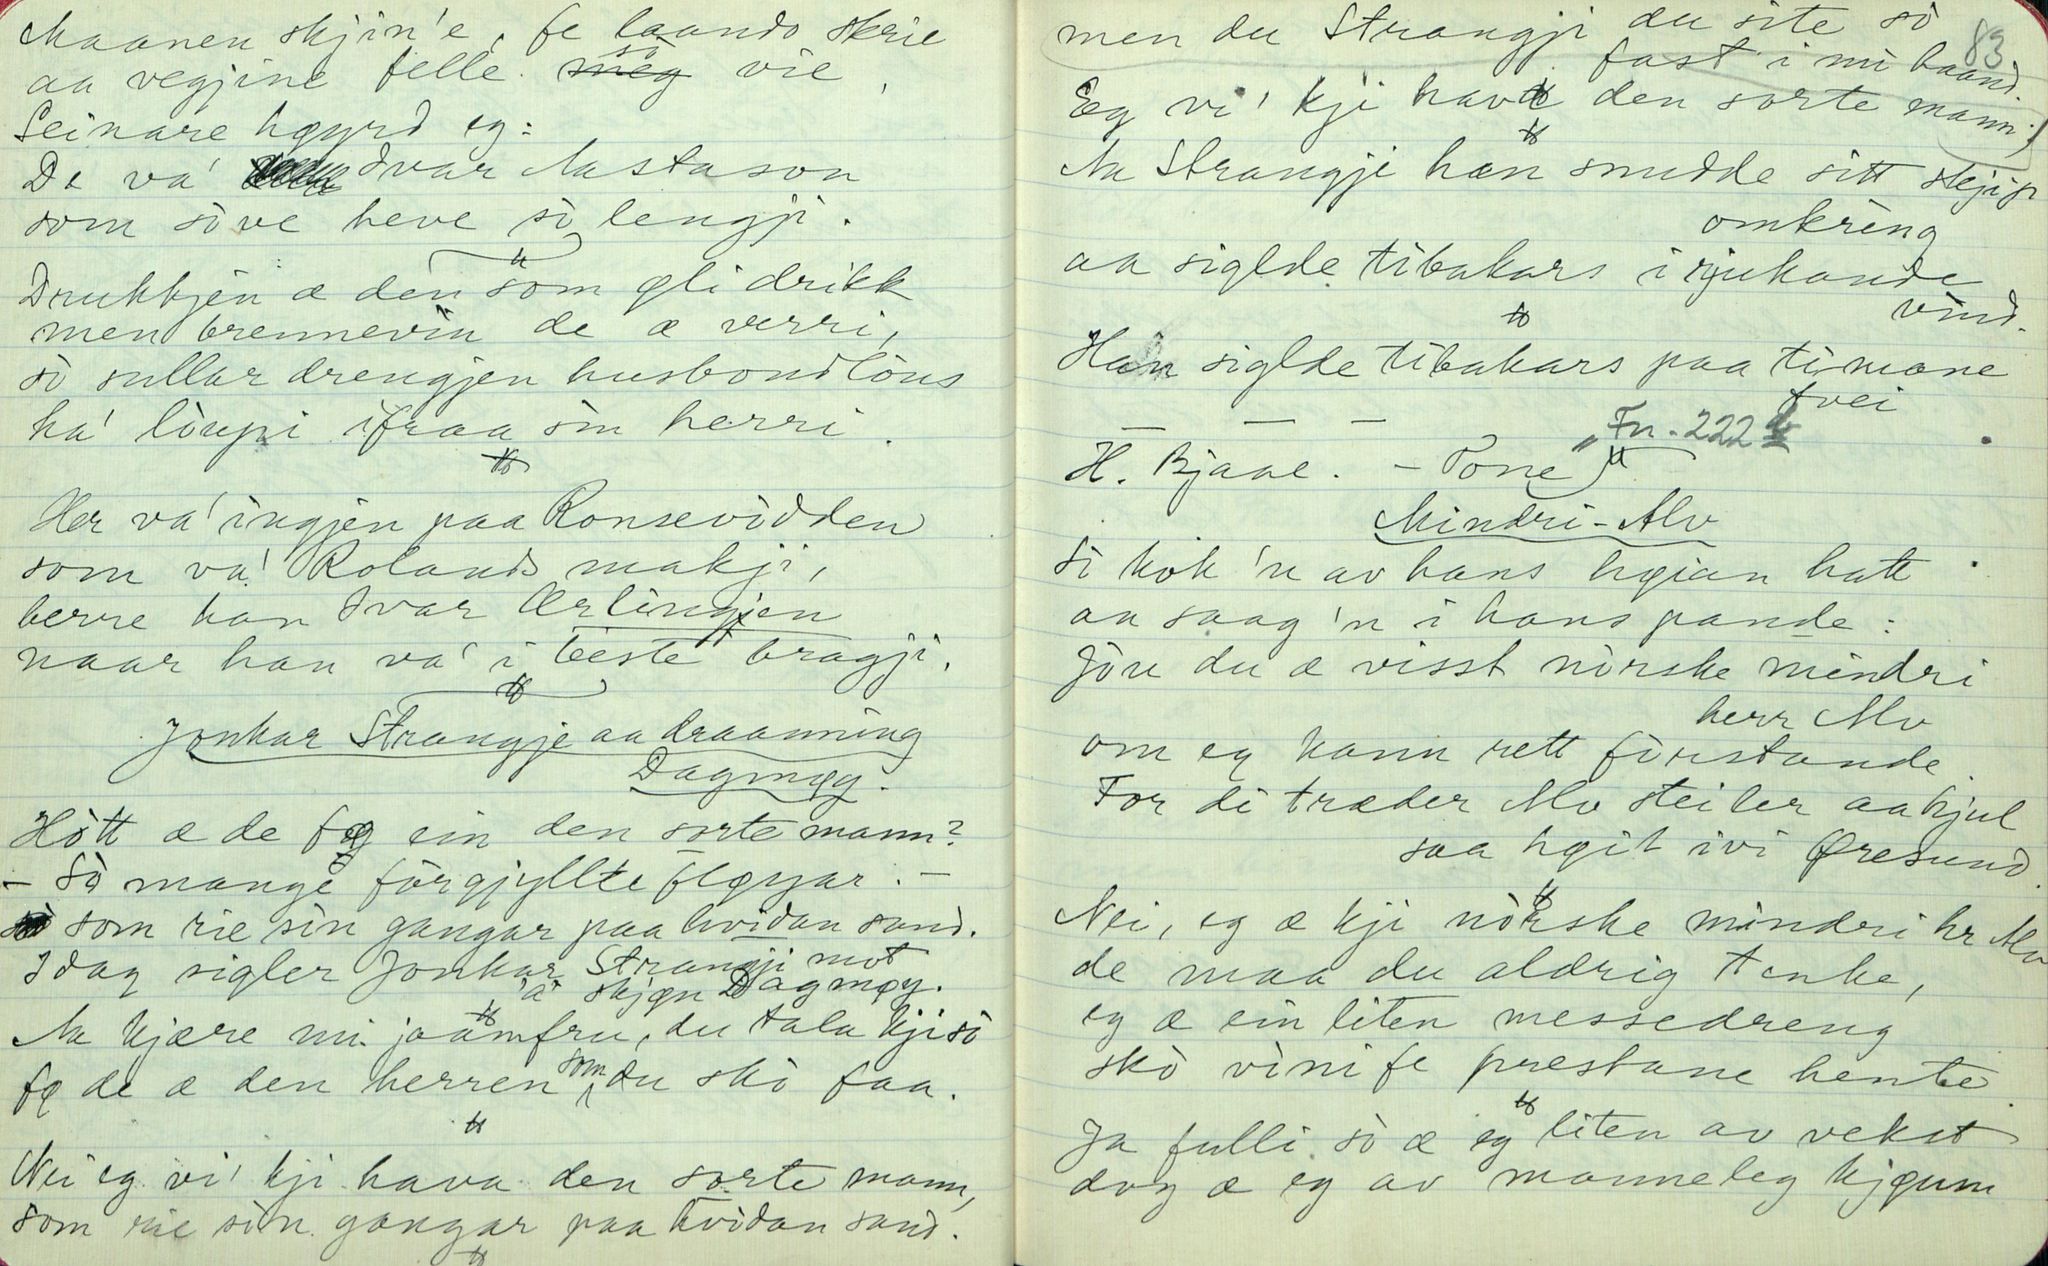 Maanen skjin'e, fe laando skrie
aa vegjine felle så vie,
Seinare høyrd eg:
De va' Ivar Aastason
som söve heve sò lengji.
Drukkjen æ den som gli drikk
men brennevin de æ verri,
sò sullar drengjen husbondlöus
ha' löupi ifraa sin herri.
Her va' ingjen paa Ronsevidden
som va' Rolands makji,
berre han Ivar Ærlingjen
naar han va' i beste bragji.
Jonkar Strangje aa draanning
Dagmøy.
Hòtt æ de fø ein den sorte mann?
– Sò mange förgjyllte fløyar. –
som rie sin gangar paa hvidan sand.
Idag sigler Jonkar Strangji mot
skjøn Dagmøy.
Aa kjære mi joamfru, du tala kji sò
fø de æ den herren som du skò faa.
Nei eg vi' kji hava den sorte mann,
som rie sin gangar paa hvidan sand.
83
men du Strangji du site sò
fast i mi haand.
Eg vi' kji have den sorte mann,
Aa Strangji han snudde sitt skjip
omkring
aa siglde tibakars i rjukande
vind.
Han siglde tibakars paa timane
tvei
Fn. 222
H. Bjaae. – Tone
Mindri-Alv
Sò kók 'n av hans høian hatt
aa saag 'n i hans pande:
Jöu du æ visst nòrske mindri
herr Alv
om eg kann rett fòrstande
For di træder Alv steiler aa hjul
saa høit ivi Øresund.
Nei, eg æ kji nòrske mindri hr Alv
de maa du aldrig tenke,
eg æ ein liten messedreng
skò vini fe prestane hente.
Ja fulli sò æ eg liten av vekst
dog æ eg av manneleg kjøum